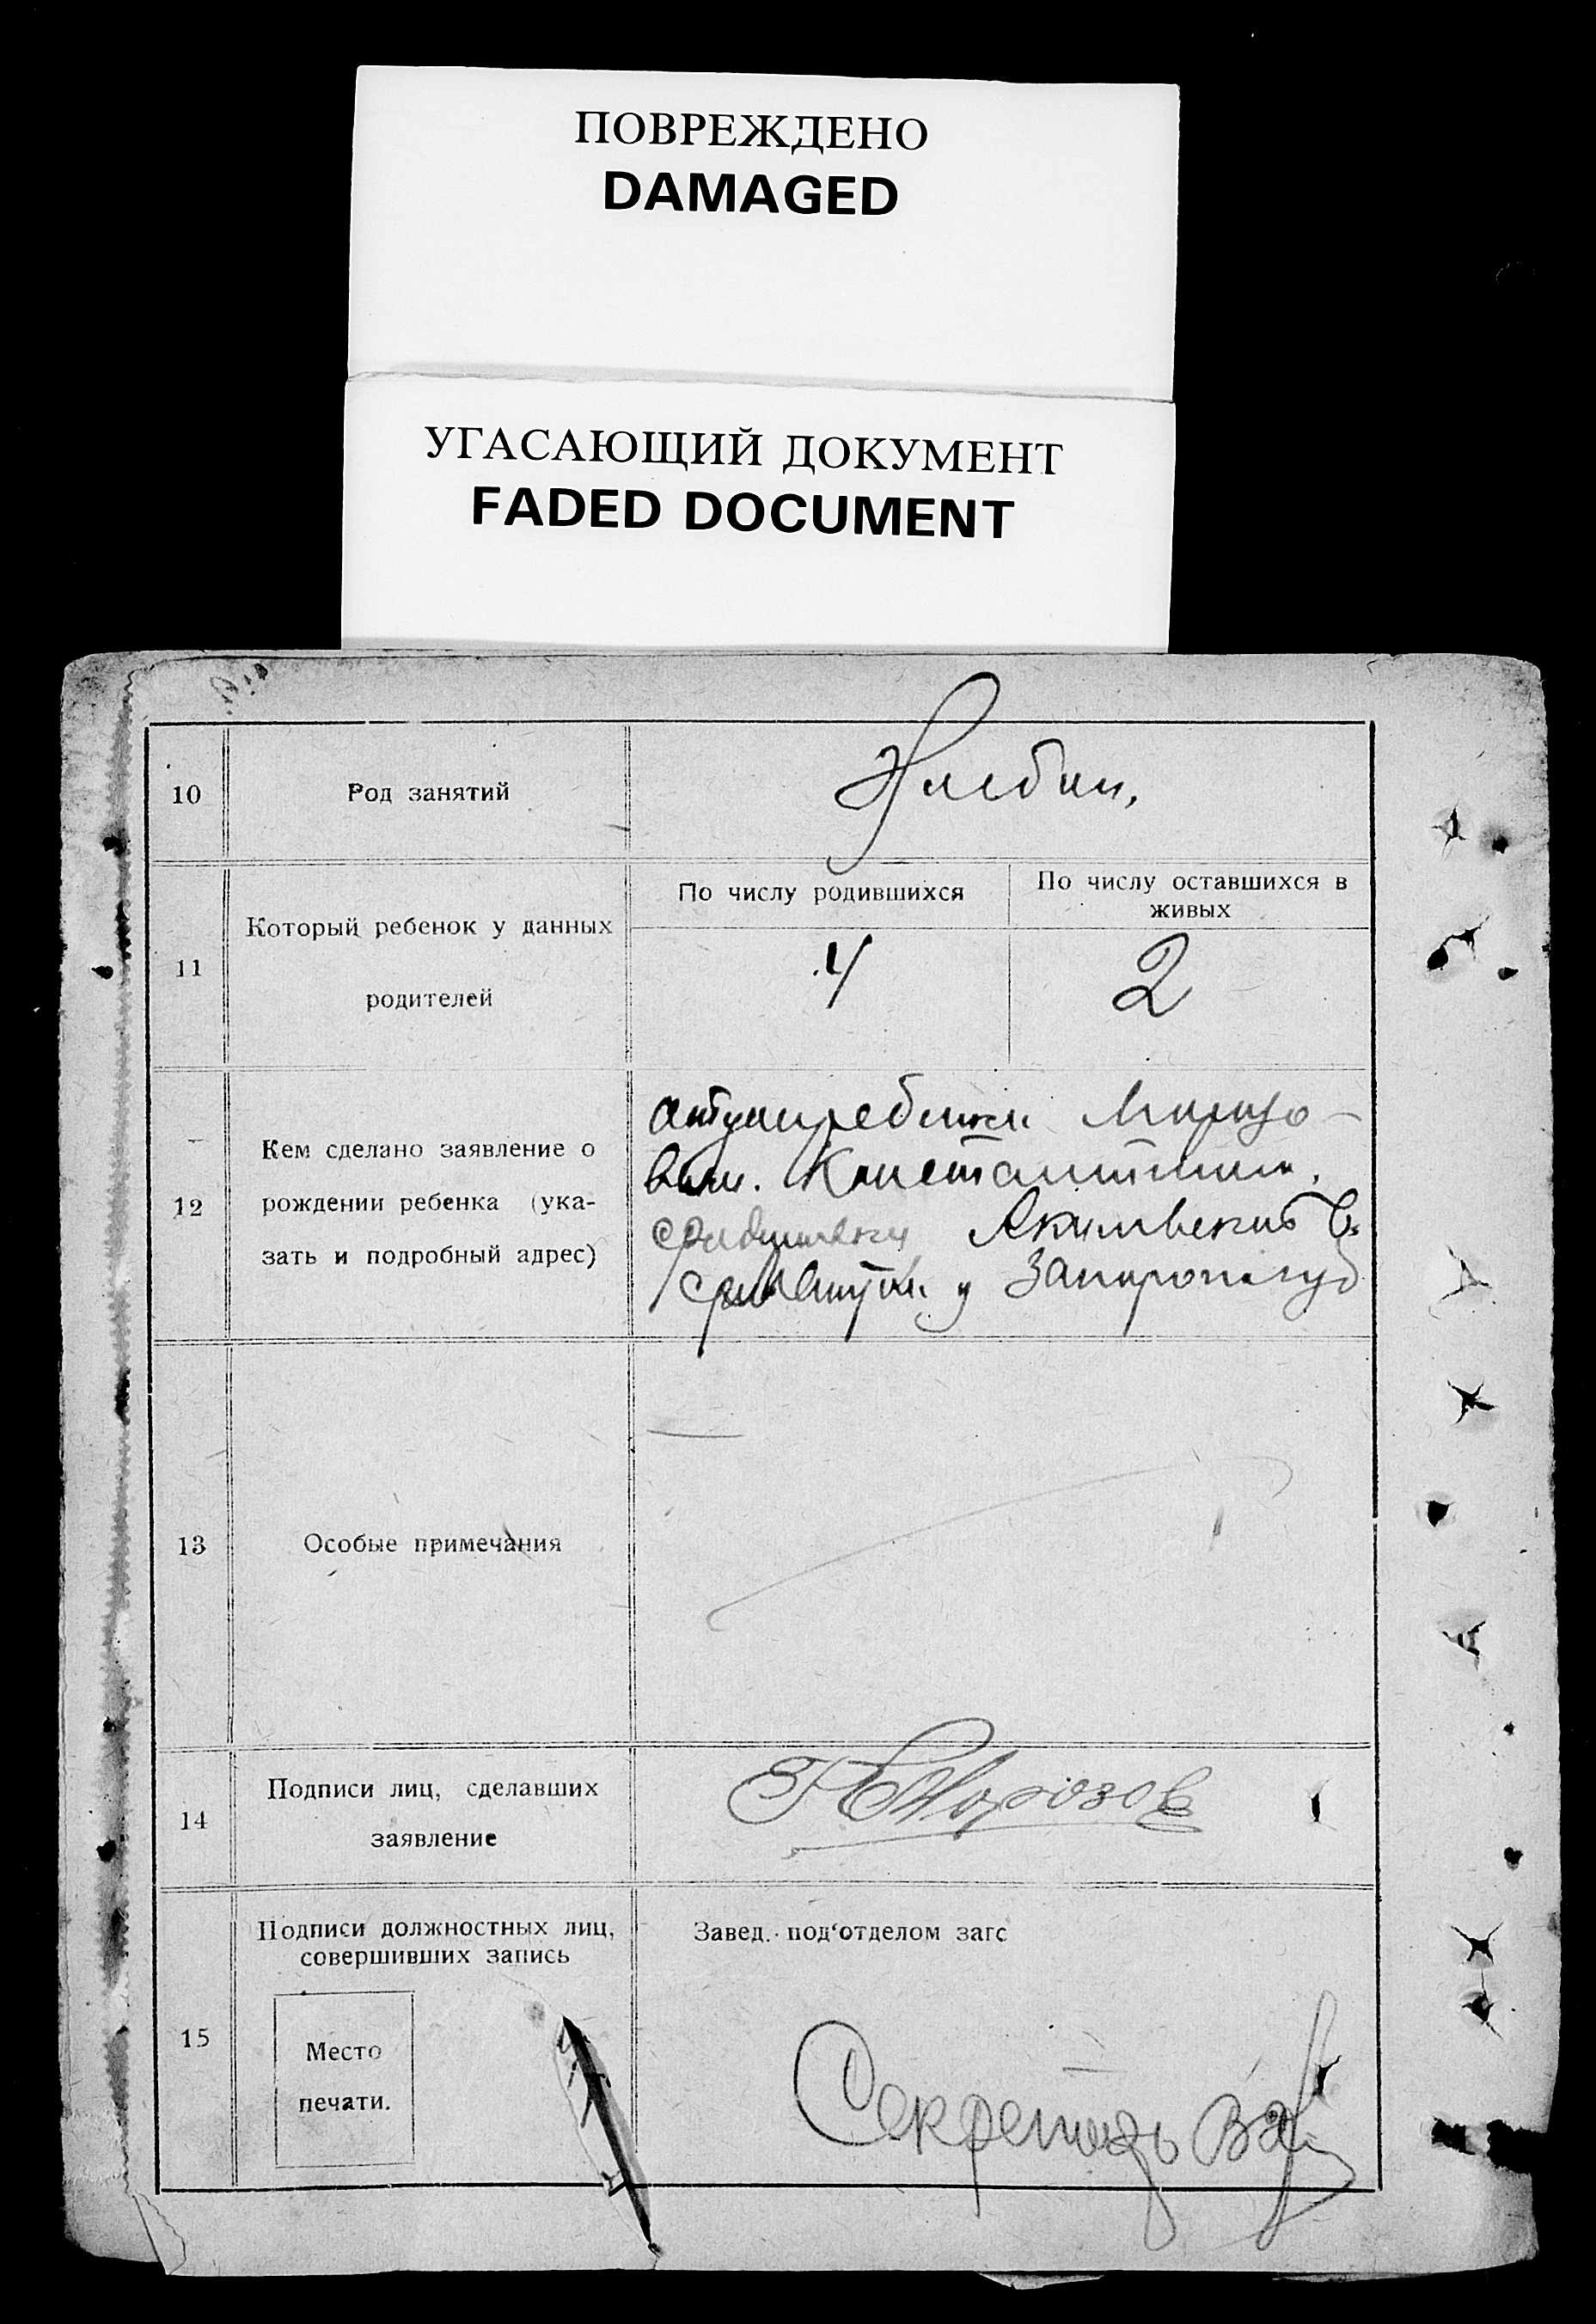 ПОВРЕЖДЕНО
DAMAGED
УГАСАЮЩИЙ ДОКУМЕНТ
FADED DOCUMENT
10
Род занятий
Хлебоп.
11
Который ребенок у данных
родителей
По числу родившихся
По числу оставшихся в
живых
4
2
12
Кем сделано заявление о
рождении ребенка (ука-
зать и подробный адрес)
отцом ребенка Морозо-
вым. Константином.
Акимовской в.
у Запорож губ
13
Особые примечания
14
Подписи лиц, сделавших
заявление
Морозов
15
Подписи должностных лиц,
совершивших запись
Место
печати.
Завед. под'отделом загс
Секретарь